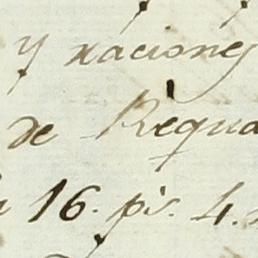 y naciones
de Requa
16. ps. 4.